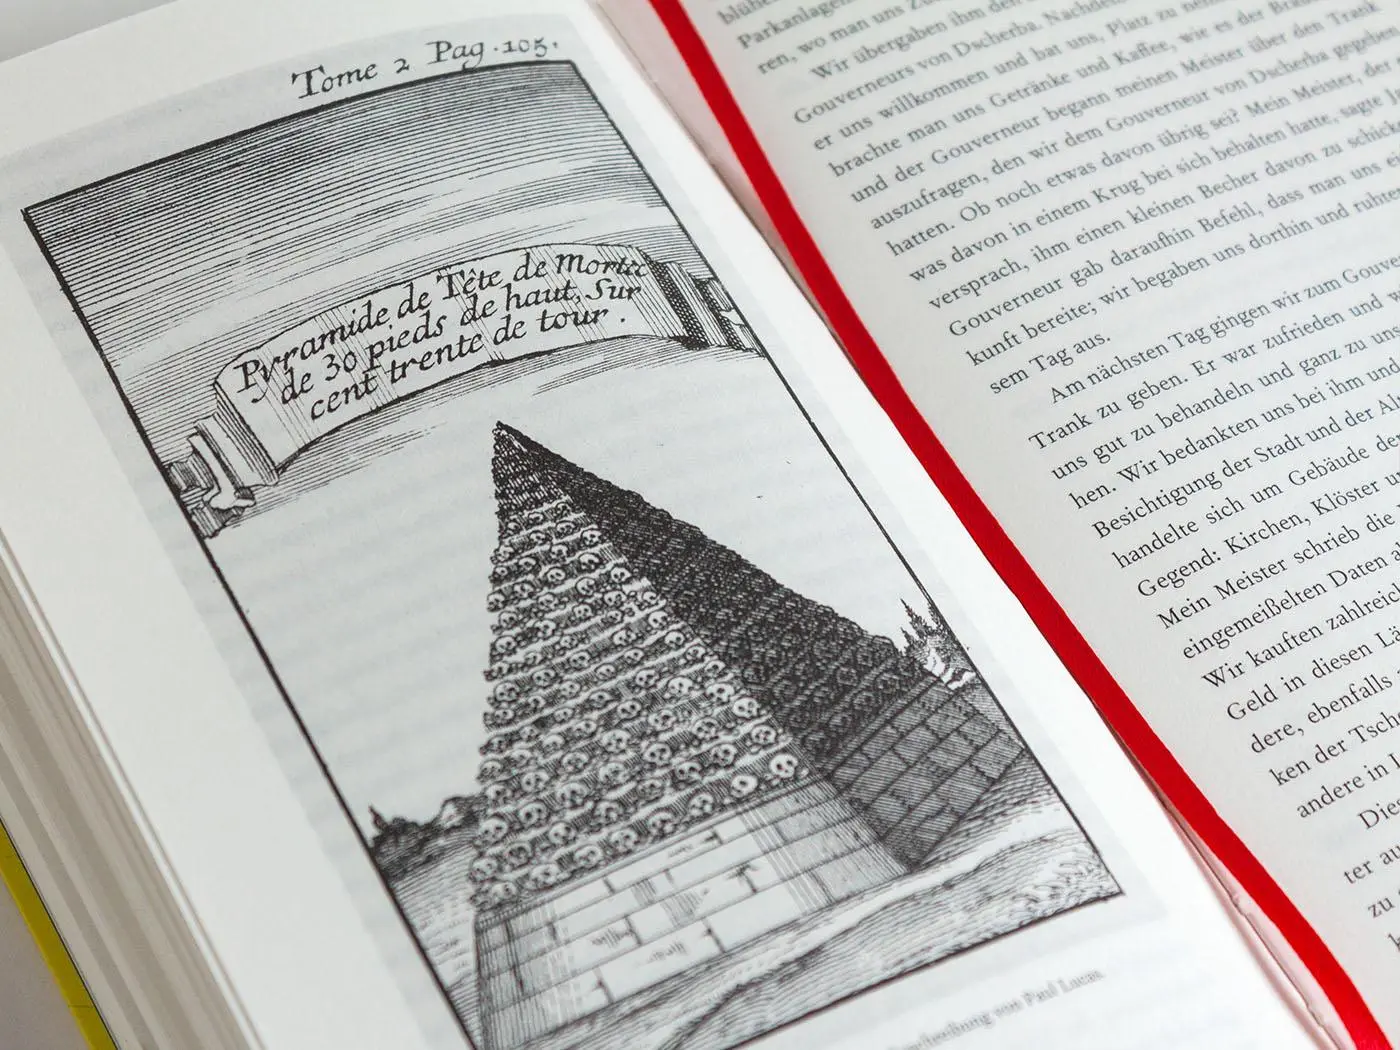 Tome 2 Pag. 105.
Pyramide de Tête de Morte
de 30 pieds de haut, Sur
cent trente de tour.
von Paul Lucas.
Parkanlagen
ren, wo man uns
Wir übergaben ihm den
Gouverneurs von Dscherba. Nachdem
er uns willkommen und bat uns, Platz zu
brachte man uns Getränke und Kaffee, wie es der
und der Gouverneur begann meinen Meister über den Trank
auszufragen, den wir dem Gouverneur von Dscherba gegeben
hatten. Ob noch etwas davon übrig sei? Mein Meister, der
was davon in einem Krug bei sich behalten hatte, sagte
versprach, ihm einen kleinen Becher davon zu
Gouverneur gab daraufhin Befehl, dass man uns
kunft bereite; wir begaben uns dorthin und
sem Tag aus.
Am nächsten Tag gingen wir zum
Trank zu geben. Er war zufrieden und
uns gut zu behandeln und ganz zu
hen. Wir bedankten uns bei ihm und
Besichtigung der Stadt und der
handelte sich um Gebäude
Gegend: Kirchen, Klöster
Mein Meister schrieb die
eingemeißelten Daten
Wir kauften
Geld in diesen
dere, ebenfalls
ken der
andere in
ter
zu